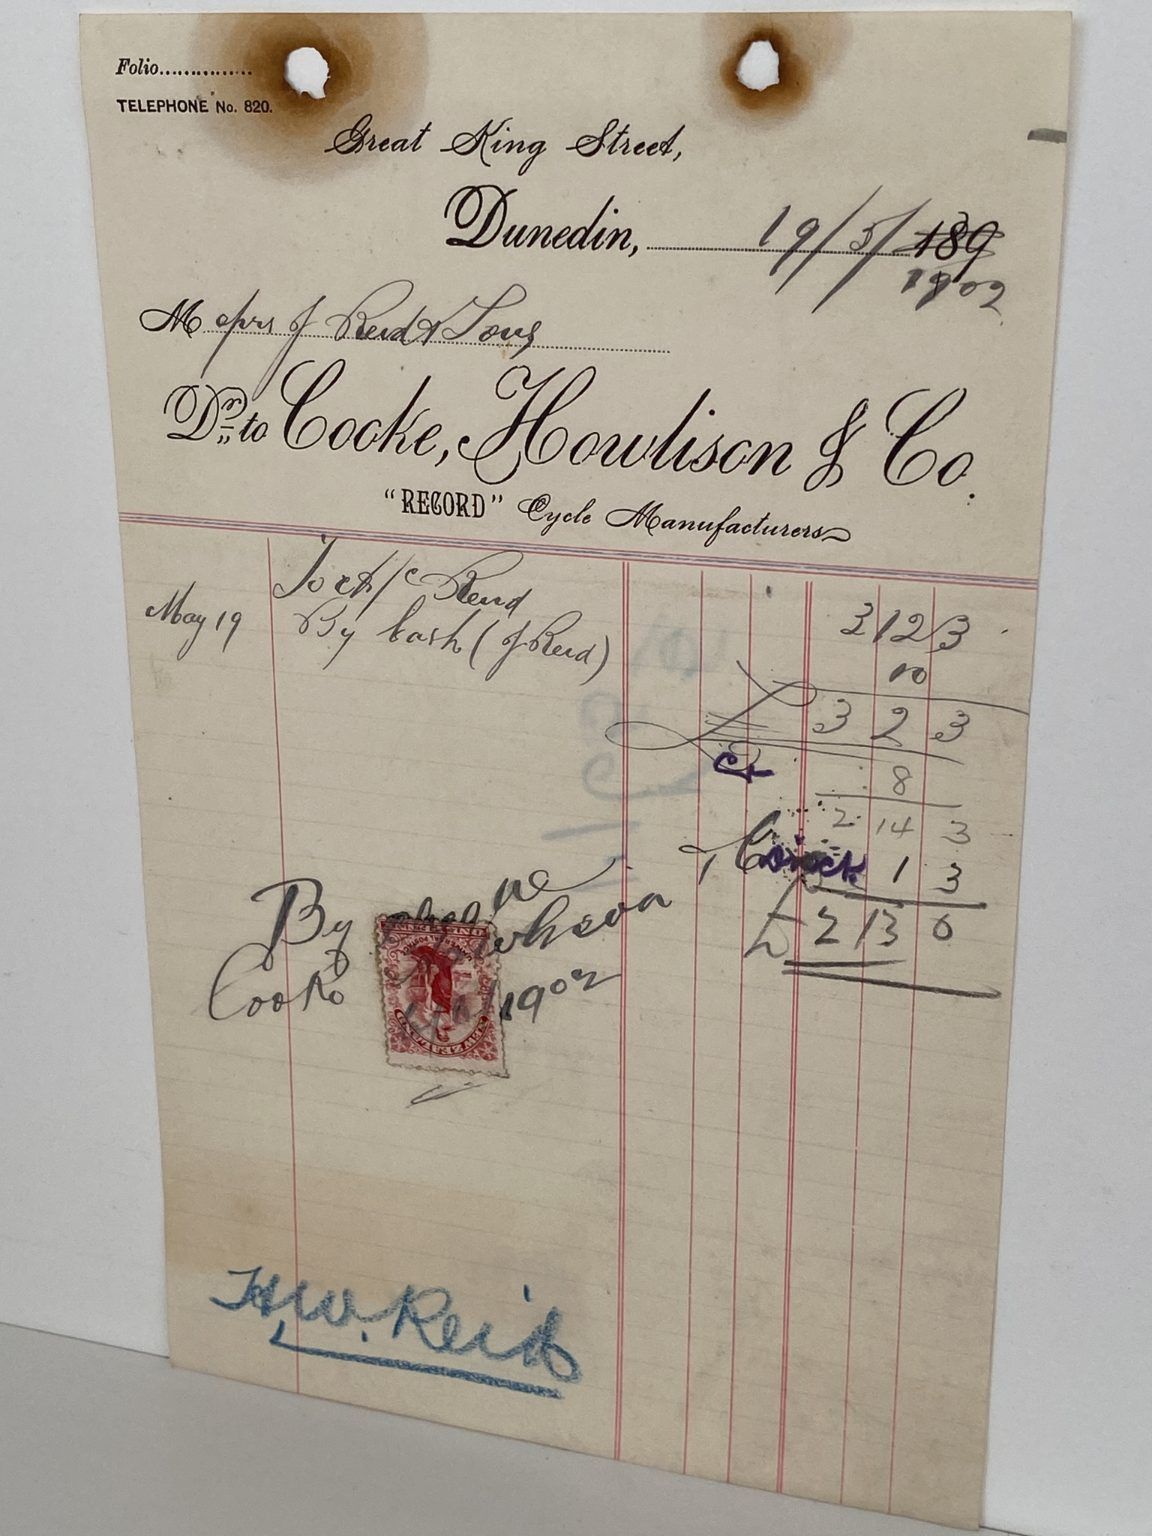 Folio..............
TELEPHONE No. 820.
Great King Street,
Dunedin, 19/5/ 189
1902
Messrs J Reid & Sons
Dr. to Cooke, Howlison & Co.
"RECORD" Cycle Manufacturers
To a/c Rend 3 12 3
May 19 By Cash (J Reid) 10
£ 3 2 3
8
2 14 3
1 3
£ 2 13 0
By
Cooke Howlison
1902
H.W. Reid